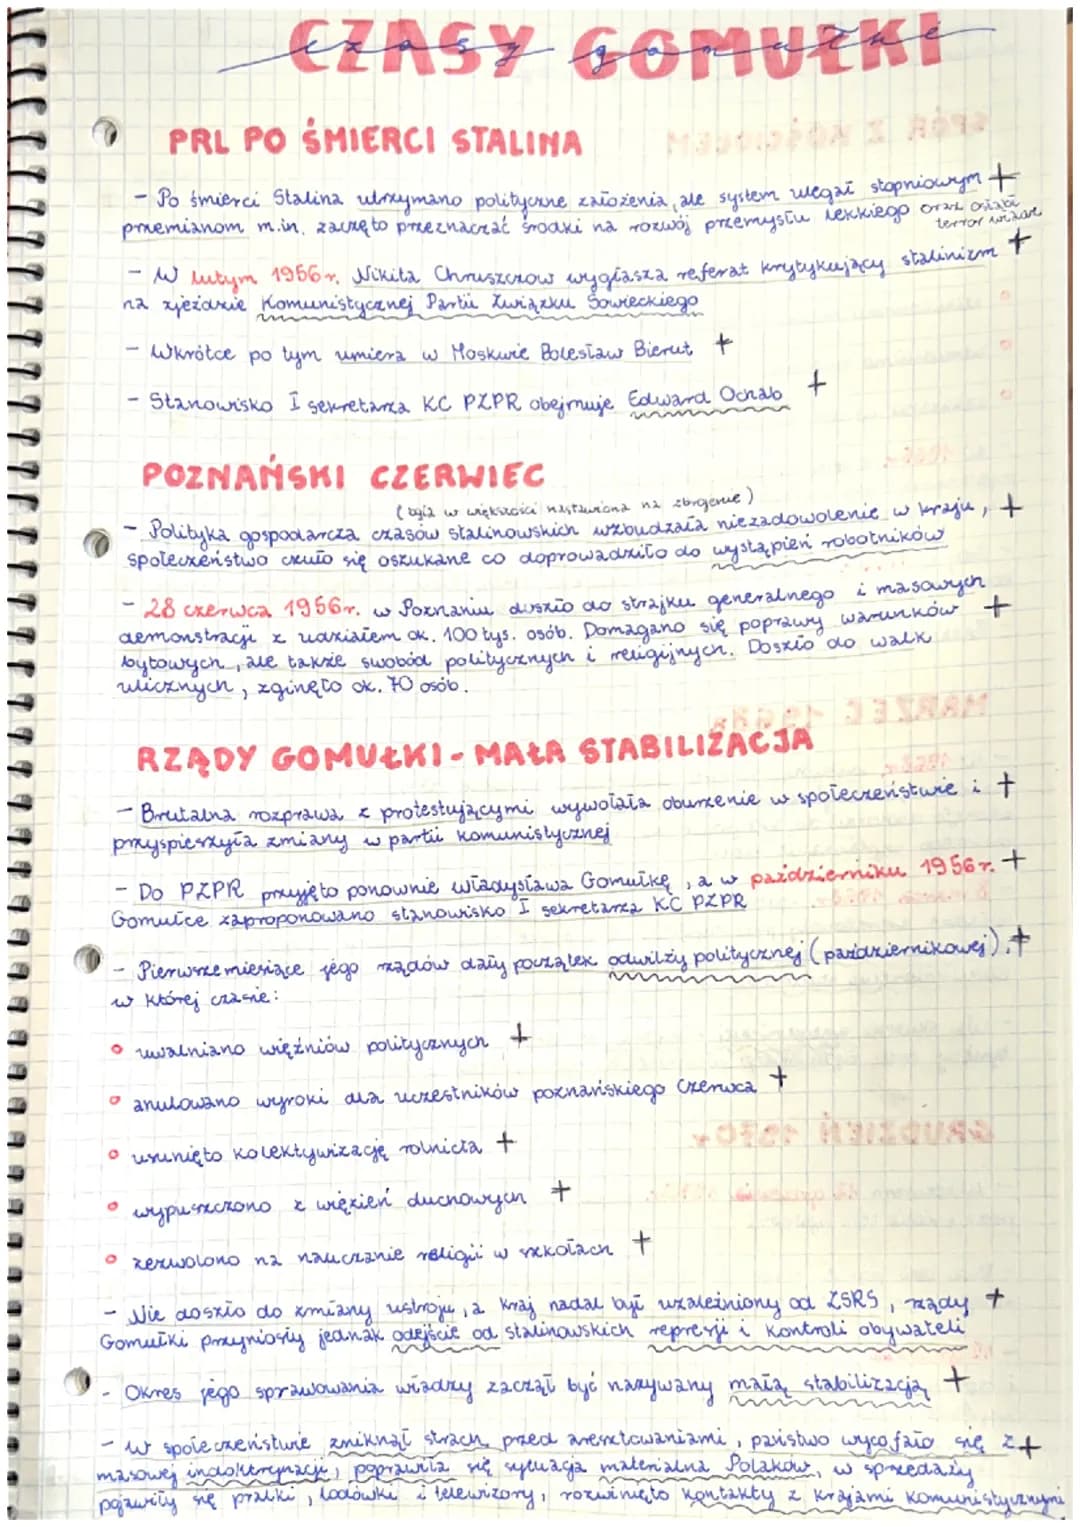 CZASY GOMUŁKI
czasy gomułki
PRL PO ŚMIERCI STALINA
- Po śmierci Stalina utrzymano polityczne założenia, ale system ulegał stopniowym +
przemianom m.in. zaczęto przeznaczać środki na rozwój przemysłu lekkiego oraz osłabł
terror władzy
- W lutym 1956r. Nikita Chruszczow wygłasza referat krytykujący stalinizm +
na zjeździe Komunistycznej Partii Związku Sowieckiego
- Wkrótce po tym umiera w Moskwie Bolesław Bierut +
- Stanowisko I sekretarza KC PZPR obejmuje Edward Ochab +
POZNAŃSKI CZERWIEC
(była w większości nastawiona na zbrojenie)
- Polityka gospodarcza czasów stalinowskich wzbudzała niezadowolenie w kraju, +
społeczeństwo czuło się oszukane co doprowadziło do wystąpień robotników
- 28 czerwca 1956r. w Poznaniu doszło do strajku generalnego i masowych
demonstracji z udziałem ok. 100 tys. osób. Domagano się poprawy warunków +
bytowych, ale także swobód politycznych i religijnych. Doszło do walk
ulicznych, zginęło ok. 70 osób.
RZĄDY GOMUŁKI - MAŁA STABILIZACJA
- Brutalna rozprawa z protestującymi wywołała oburzenie w społeczeństwie i +
przyspieszyła zmiany w partii komunistycznej
- Do PZPR przyjęto ponownie Władysława Gomułkę, a w październiku 1956r. +
Gomułce zaproponowano stanowisko I sekretarza KC PZPR
- Pierwsze miesiące jego rządów dały początek odwilży politycznej (październikowej), +
w której czasie:
• uwalniano więźniów politycznych +
• anulowano wyroki dla uczestników poznańskiego Czerwca +
• usunięto kolektywizację rolnicta +
• wypuszczono z więzień duchowych +
• zezwolono na nauczanie religii w szkołach +
- Nie doszło do zmiany ustroju, a kraj nadal był uzależniony od ZSRS, rządy +
Gomułki przyniosły jednak odejście od stalinowskich represji i kontroli obywateli
- Okres jego sprawowania władzy zaczął być nazywany małą stabilizacją +
- W społeczeństwie zniknął strach przed aresztowaniami, państwo wycofało się z +
masowej indoktrynacji, poprawiła się sytuacja materialna Polaków, w sprzedaży
pojawiły się pralki, lodówki i telewizory, rozwinięto kontakty z krajami komunistycznymi